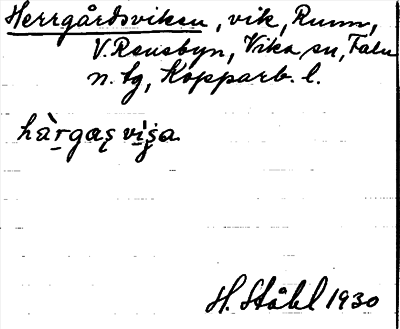 Herrgårdsviken, vik, Runn,
V. Rensbyn, Vika sn, Falu
n. tg, Kopparb. l.
hàrgas viʒa.
H. Ståhl 1930